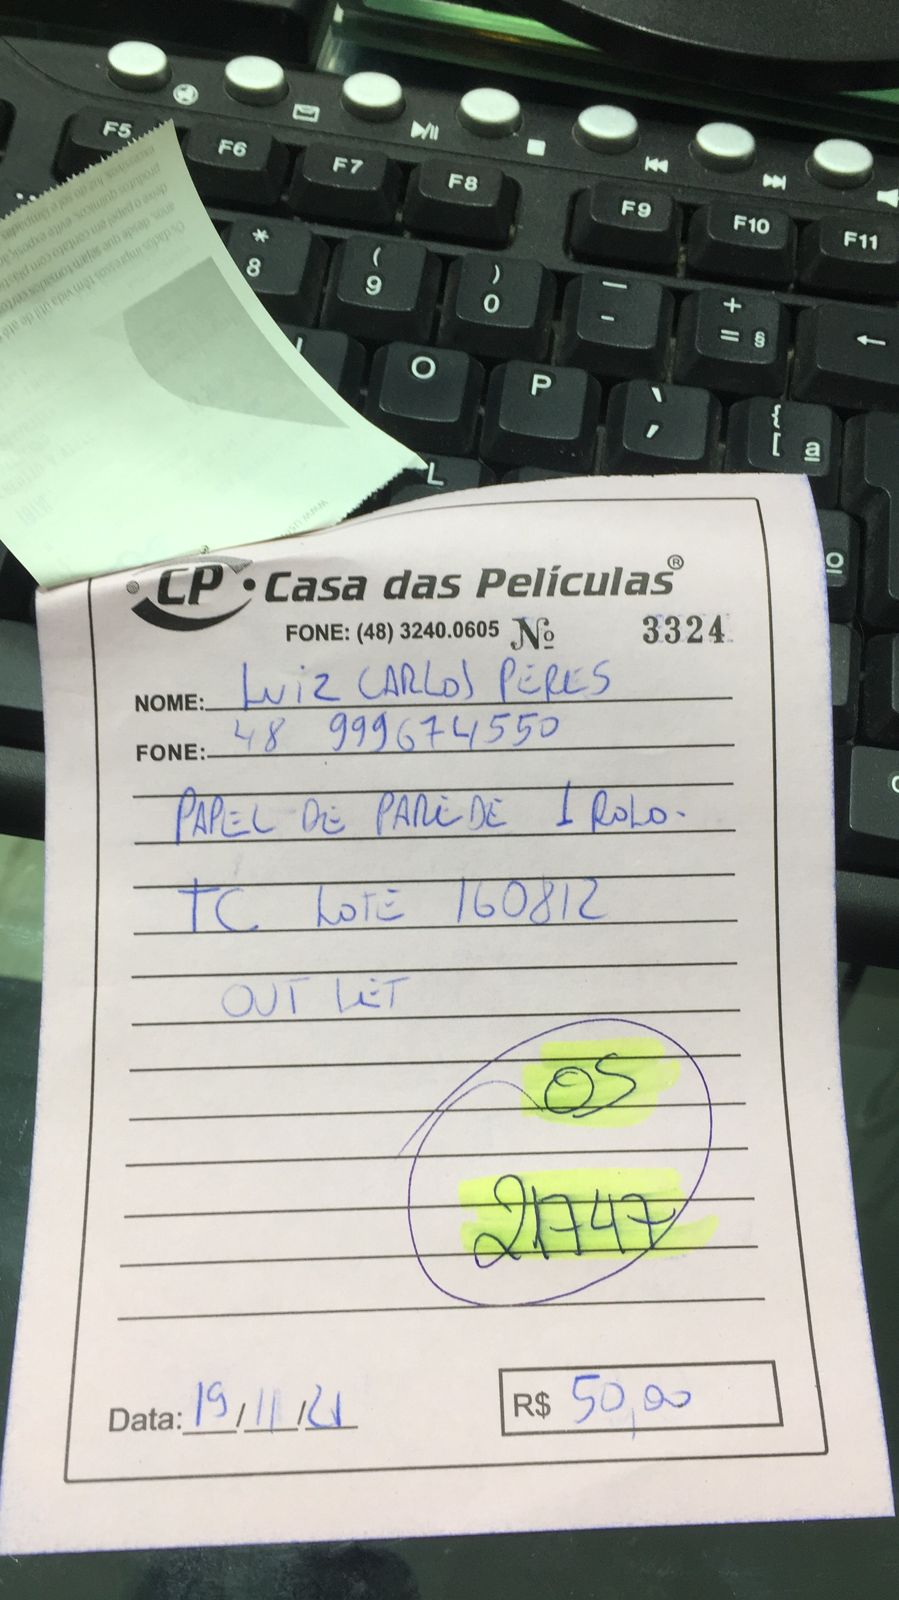 F5
F6
F7
F8
F9
F10
F11
*
8
(
9
)
0
—
-
+
= §
←
O
P
{
[ ª
L
º
CP Casa das Películas®
FONE: (48) 3240.0605 Nº 3324
NOME: LUIZ CARLOS PERES
FONE: 48 999674550
PAPEL DE PAREDE 1 ROLO.
TC LOTE 160812
OUT LET
OS
21747
Data: 19/11/21
R$ 50,00